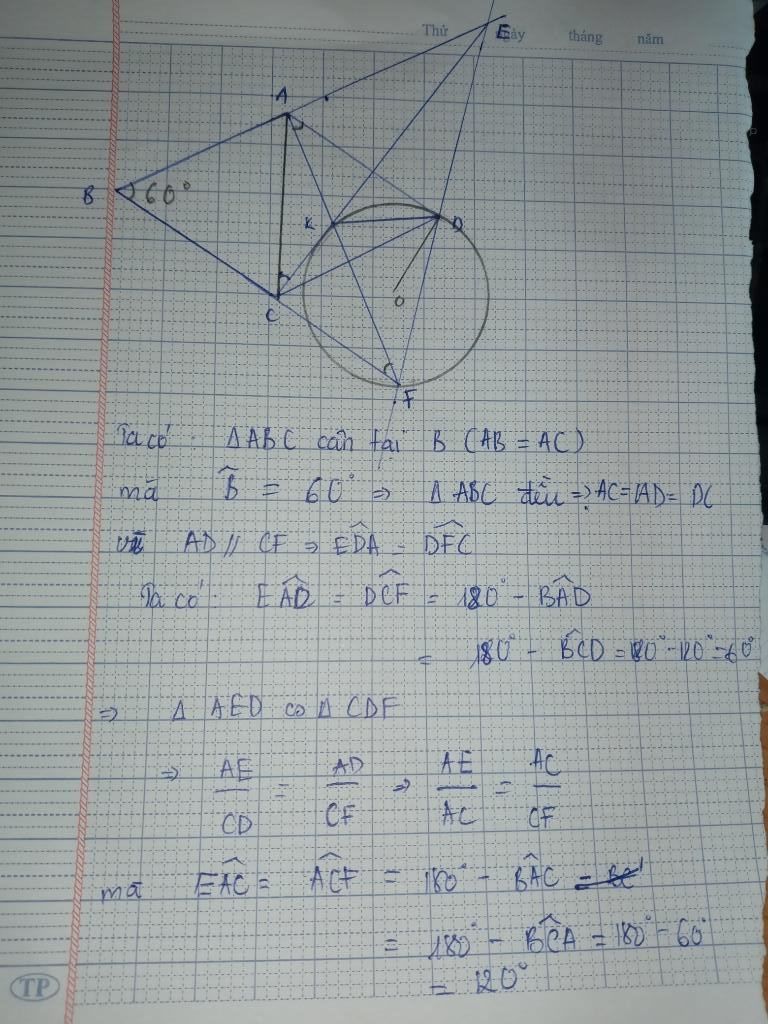 Thứ bảy tháng năm
E
A
B 60°
K D
C O
F
Ta có: ΔABC cân tại B (AB = AC)
mà B̂ = 60° => Δ ABC đều => AC = AD = DC
vì AD // CF => EDA = DFC
Ta có: EAD = DCF = 180° - BAD
= 180° - BCD = 180° - 120° = 60°
=> Δ AED ∽ Δ CDF
=> AE/CD = AD/CF => AE/AC = AC/CF
mà EAC = ACF = 180° - BAC
= 180° - BCA = 180° - 60°
= 120°
TP